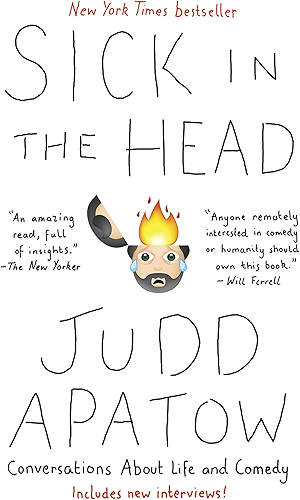 New York Times bestseller
SICK IN
THE HEAD
"An amazing
read, full
of insights."
-The New Yorker
"Anyone remotely
interested in comedy
or humanity should
own this book."
- Will Ferrell
JUDD
APATOW
Conversations About Life and Comedy
Includes new interviews!